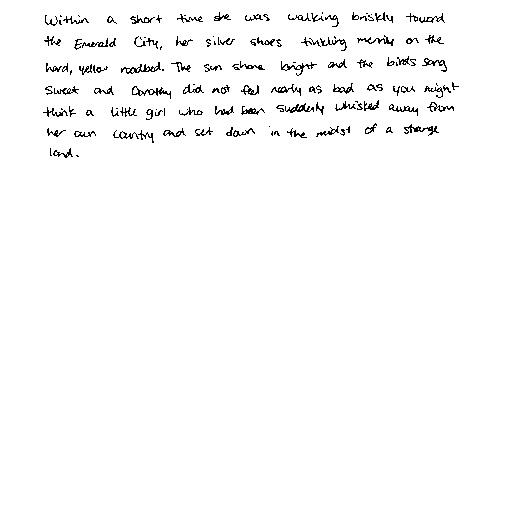 Within a short time she was walking briskly toward
the Emerald City, her silver shoes tinkling merrily on the
hard, yellow roadbed. The sun shone bright and the birds sang
sweet and Dorothy did not feel nearly as bad as you might
think a little girl who had been suddenly whisked away from
her own country and set down in the midst of a strange
land.